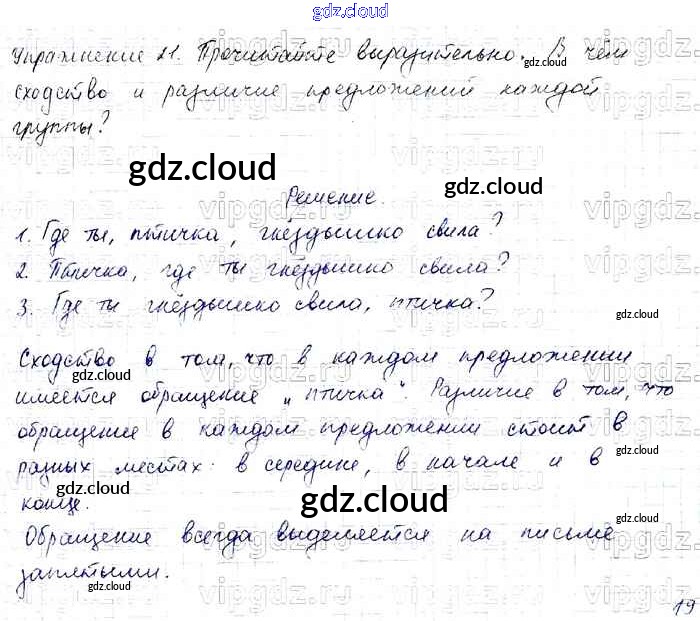 gdz.cloud
Упражнение 21. Прочитайте выразительно. В чём
gdz.cloud
сходство и различие предложений каждой
группы?
gdz.cloud
gdz.cloud
Решение.
1. Где ты, птичка, гнёздышко свила?
2. Птичка, где ты гнёздышко свила?
3. Где ты гнёздышко свила, птичка?
gdz.cloud
Сходство в том, что в каждом предложении
gdz.cloud
имеется обращение „птичка“. Различие в том, что
обращение в каждом предложении стоит в
разных местах: в середине, в начале и в
конце.
gdz.cloud
gdz.cloud
Обращение всегда выделяется на письме
запятыми.
gdz.cloud
19